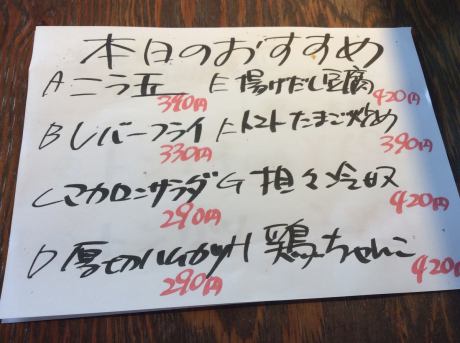 本日のおすすめ
Aニラ玉 E揚げだし豆腐
390円 420円
Bレバーフライ Fトマトたまご炒め
330円 390円
Cマカロニサラダ G担々冷奴
290円 420円
D厚切ハムカツ H鶏ちゃんこ
290円 420円